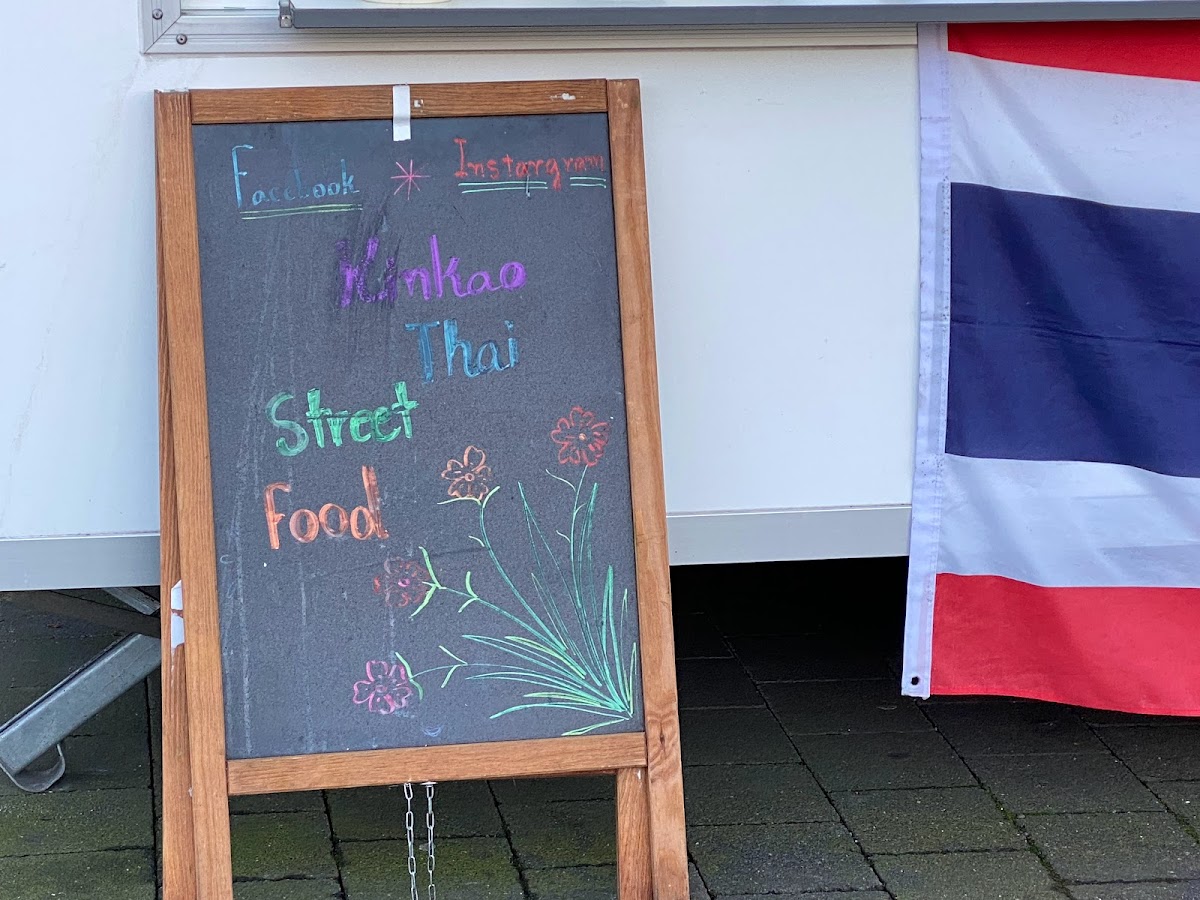 Facebook * Instargram
Kinkao
Thai
Street
Food